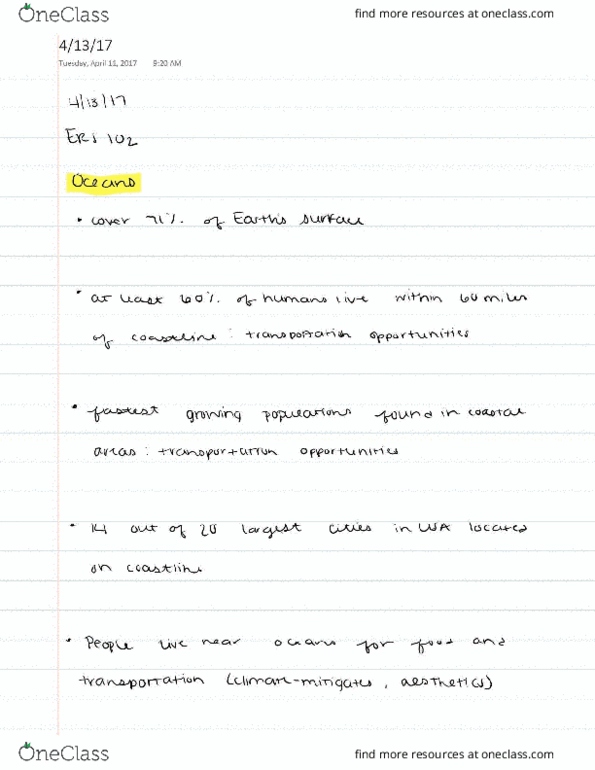 OneClass
find more resources at oneclass.com
4/13/17
Tuesday, April 11, 2017 9:20 AM
4/13/17
ERS 102
Oceans
• cover 71% of Earth's surface
• at least 60% of humans live within 60 miles
of coastline : transportation opportunities
• fastest growing populations found in coastal
areas : transportation opportunities
• 14 out of 20 largest cities in WA located
on coastline
• People live near oceans for food and
transportation (climate-mitigates, aesthetics)
OneClass
find more resources at oneclass.com